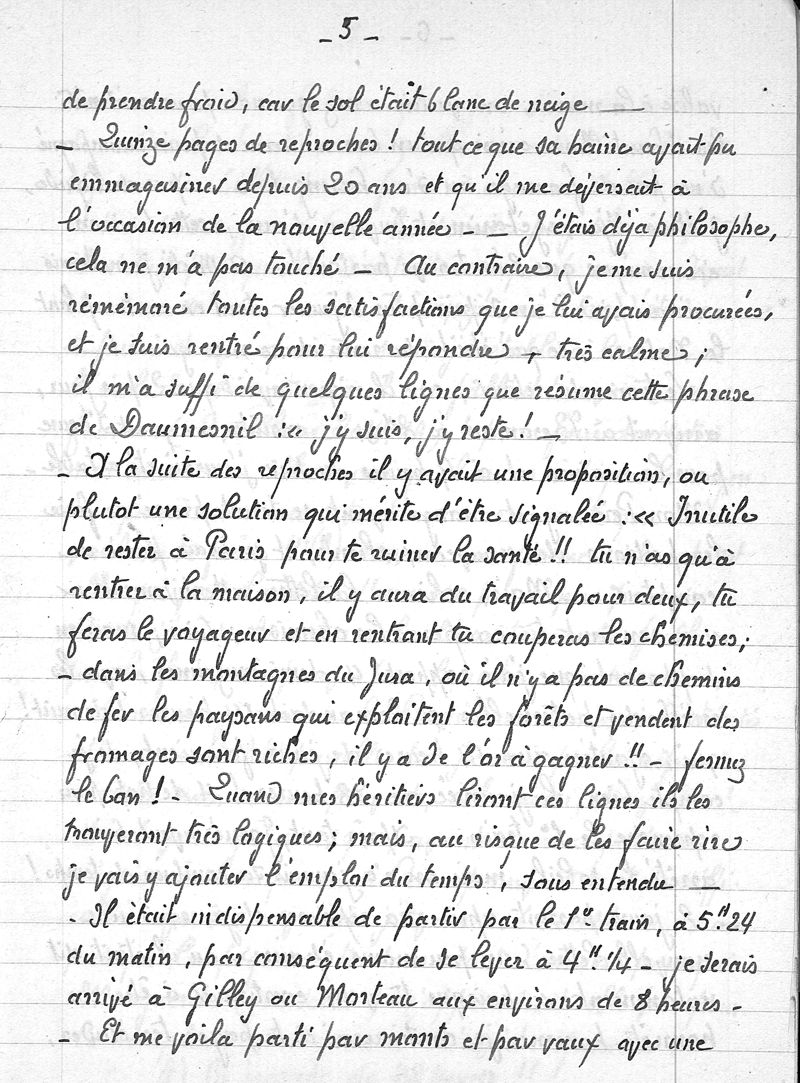 _ 5 _
de prendre froid, car le sol était blanc de neige __
_ Quinze pages de reproches ! tout ce que sa haine avait pu
emmagasiner depuis 20 ans et qu'il me déversait à
l'occasion de la nouvelle année - _ J'étais déja philosophe,
cela ne m'a pas touché _ Au contraire, je me suis
rémémoré toutes les satisfactions que je lui avais procurées,
et je suis rentré pour lui répondre, très calme ;
il m'a suffi de quelques lignes que résume cette phrase
de Daumesnil : « j'y suis, j'y reste ! _
_ A la suite des reproches il y avait une proposition, ou
plutot une solution qui mérite d'être signalée : « Inutile
de rester à Paris pour te ruiner la santé !! tu n'as qu'à
rentrer à la maison, il y aura du travail pour deux, tu
feras le voyageur et en rentrant tu couperas les chemises ;
_ dans les montagnes du Jura, où il n'y a pas de chemins
de fer les paysans qui exploitent les forêts et vendent des
fromages sont riches, il y a de l'or à gagner !! _ fermez
le ban ! - Quand mes héritiers liront ces lignes ils les
trouveront très logiques ; mais, au risque de les faire rire
je vais y ajouter l'emploi du temps, sous entendu __
. Il était indispensable de partir par le 1er train, à 5H.24
du matin, par conséquent de se lever à 4H.1/4 _ je serais
arrivé à Gilley ou Morteau aux environs de 8 heures -
_ Et me voila parti par monts et par vaux avec une